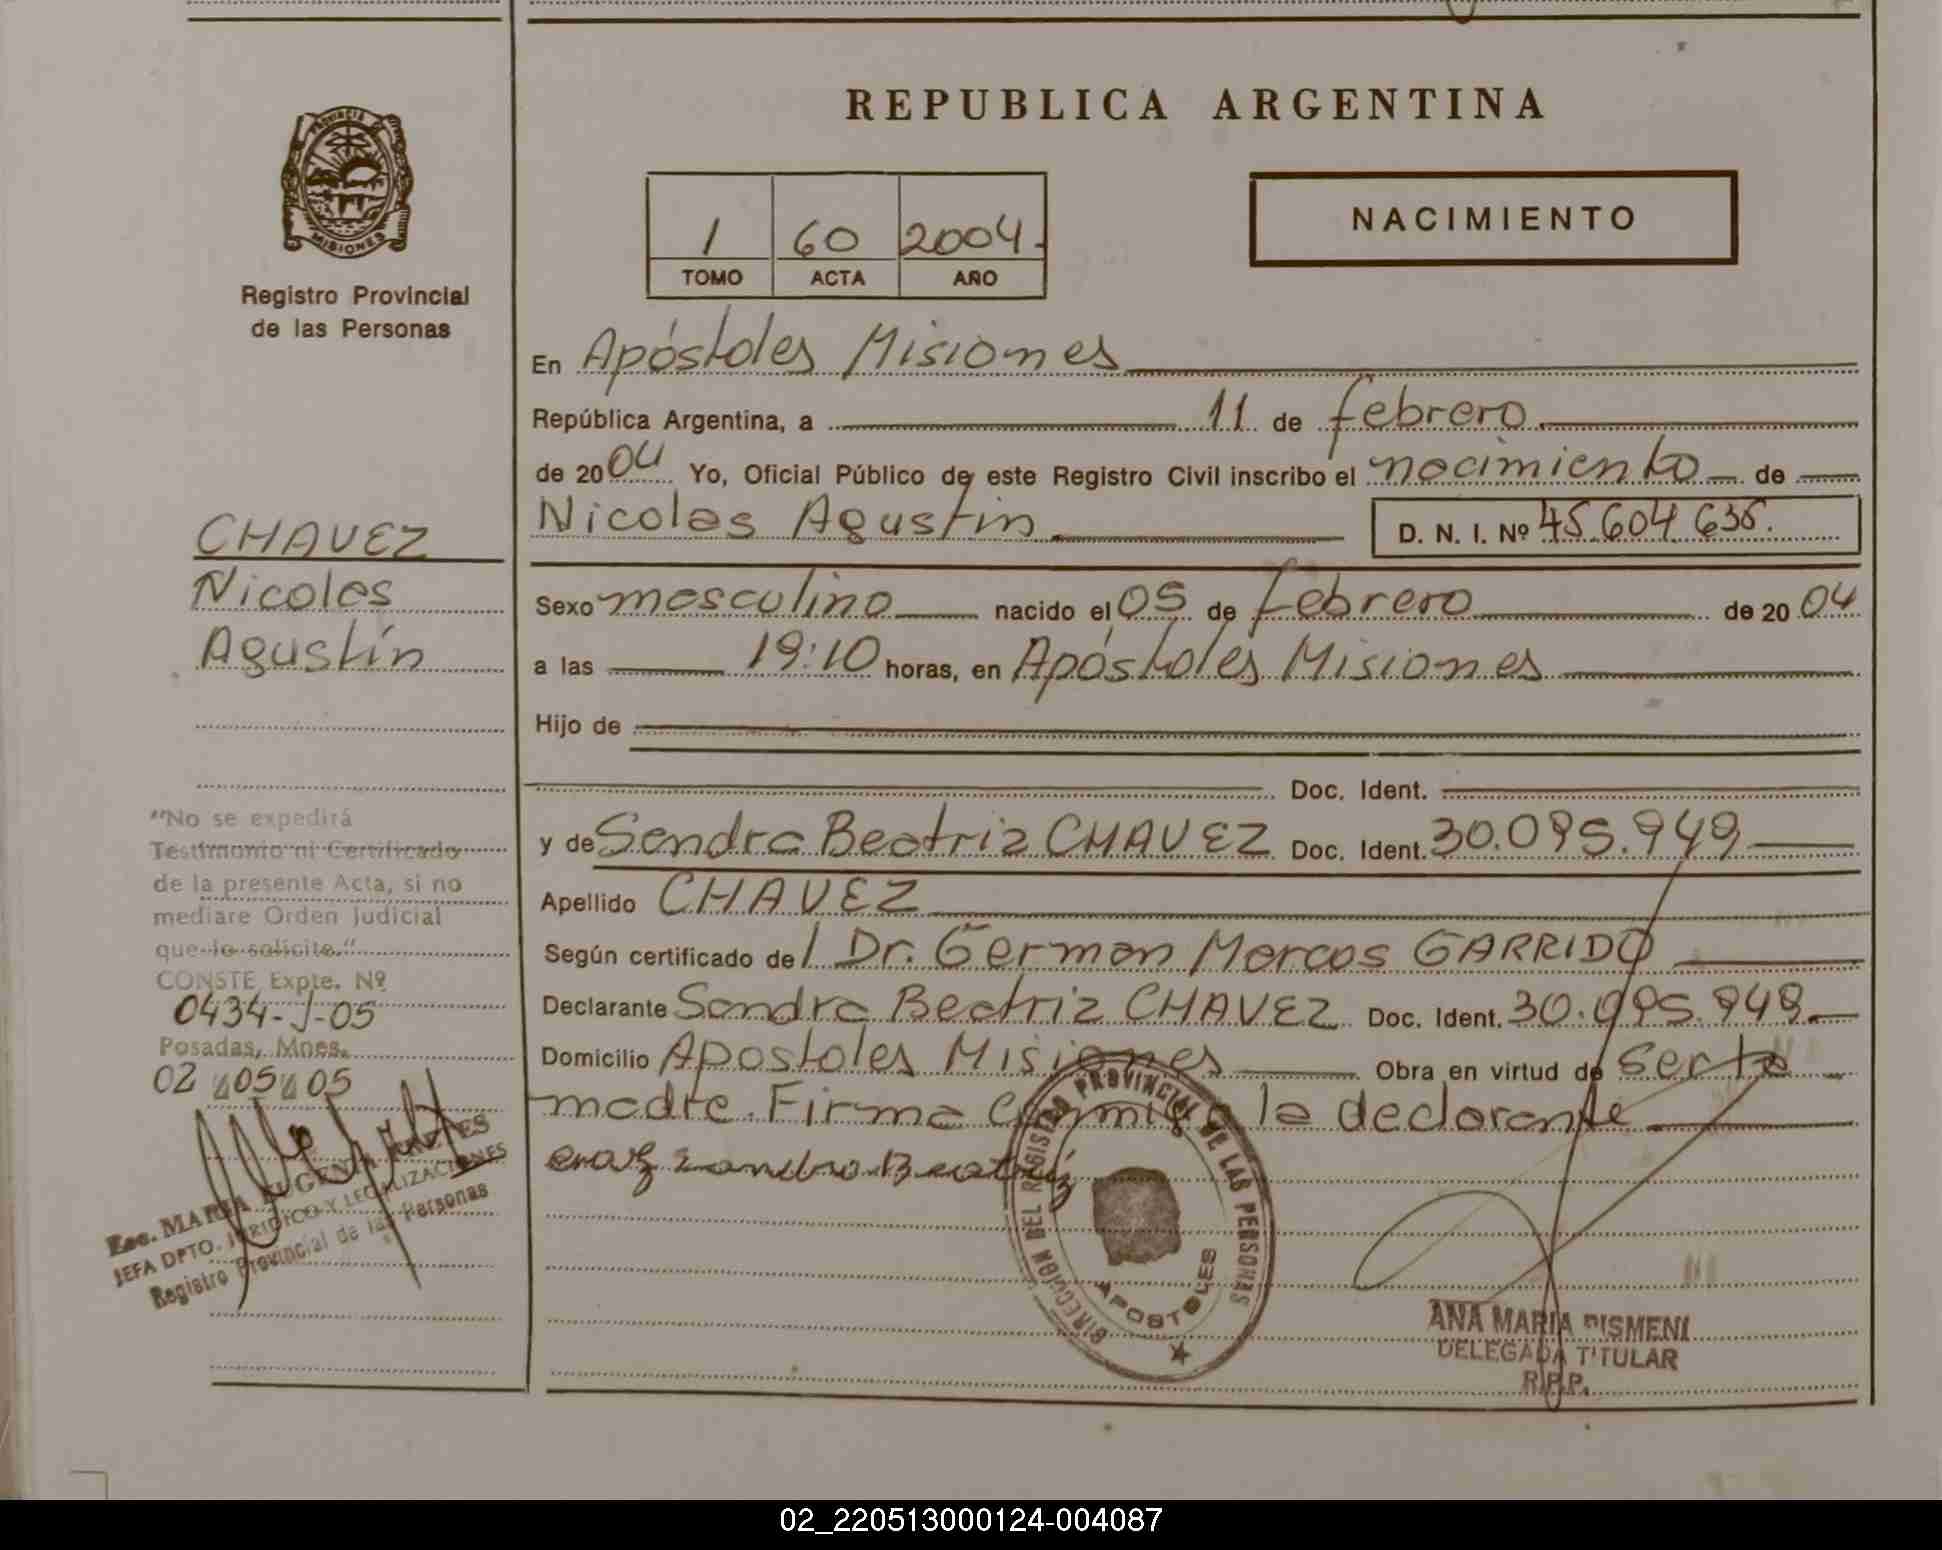 REPUBLICA ARGENTINA
PROVINCIA DE
MISIONES
Registro Provincial
de las Personas
1 60 2004
TOMO ACTA AÑO
NACIMIENTO
En Apóstoles Misiones
República Argentina, a 11 de febrero
de 2004 Yo, Oficial Público de este Registro Civil inscribo el nacimiento de
Nicolas Agustín D. N. I. Nº 45.604.635.
CHAVEZ
Nicolas
Agustín
Sexo masculino nacido el 05 de febrero de 2004
a las 19:10 horas, en Apóstoles Misiones
Hijo de
Doc. Ident.
y de Sandra Beatriz CHAVEZ Doc. Ident. 30.095.949
Apellido CHAVEZ
Según certificado del Dr. German Marcos GARRIDO
Declarante Sandra Beatriz CHAVEZ Doc. Ident. 30.095.949.
Domicilio Apostoles Misiones Obra en virtud de ser la
madre. Firma conmigo la declarante
"No se expedirá
Testimonio ni Certificado
de la presente Acta, si no
mediare Orden Judicial
que lo solicite."
CONSTE Expte. Nº
0434-J-05
Posadas, Mnes.
02 05 05
Esc. MARIA EUGENIA
JEFA DPTO. JURIDICO Y LEGALIZACIONES
Registro Provincial de las Personas
DIRECCION DEL REGISTRO PROVINCIAL DE LAS PERSONAS
APOSTOLES
ANA MARIA PISMENI
DELEGADA TITULAR
R.P.P.
02_220513000124-004087